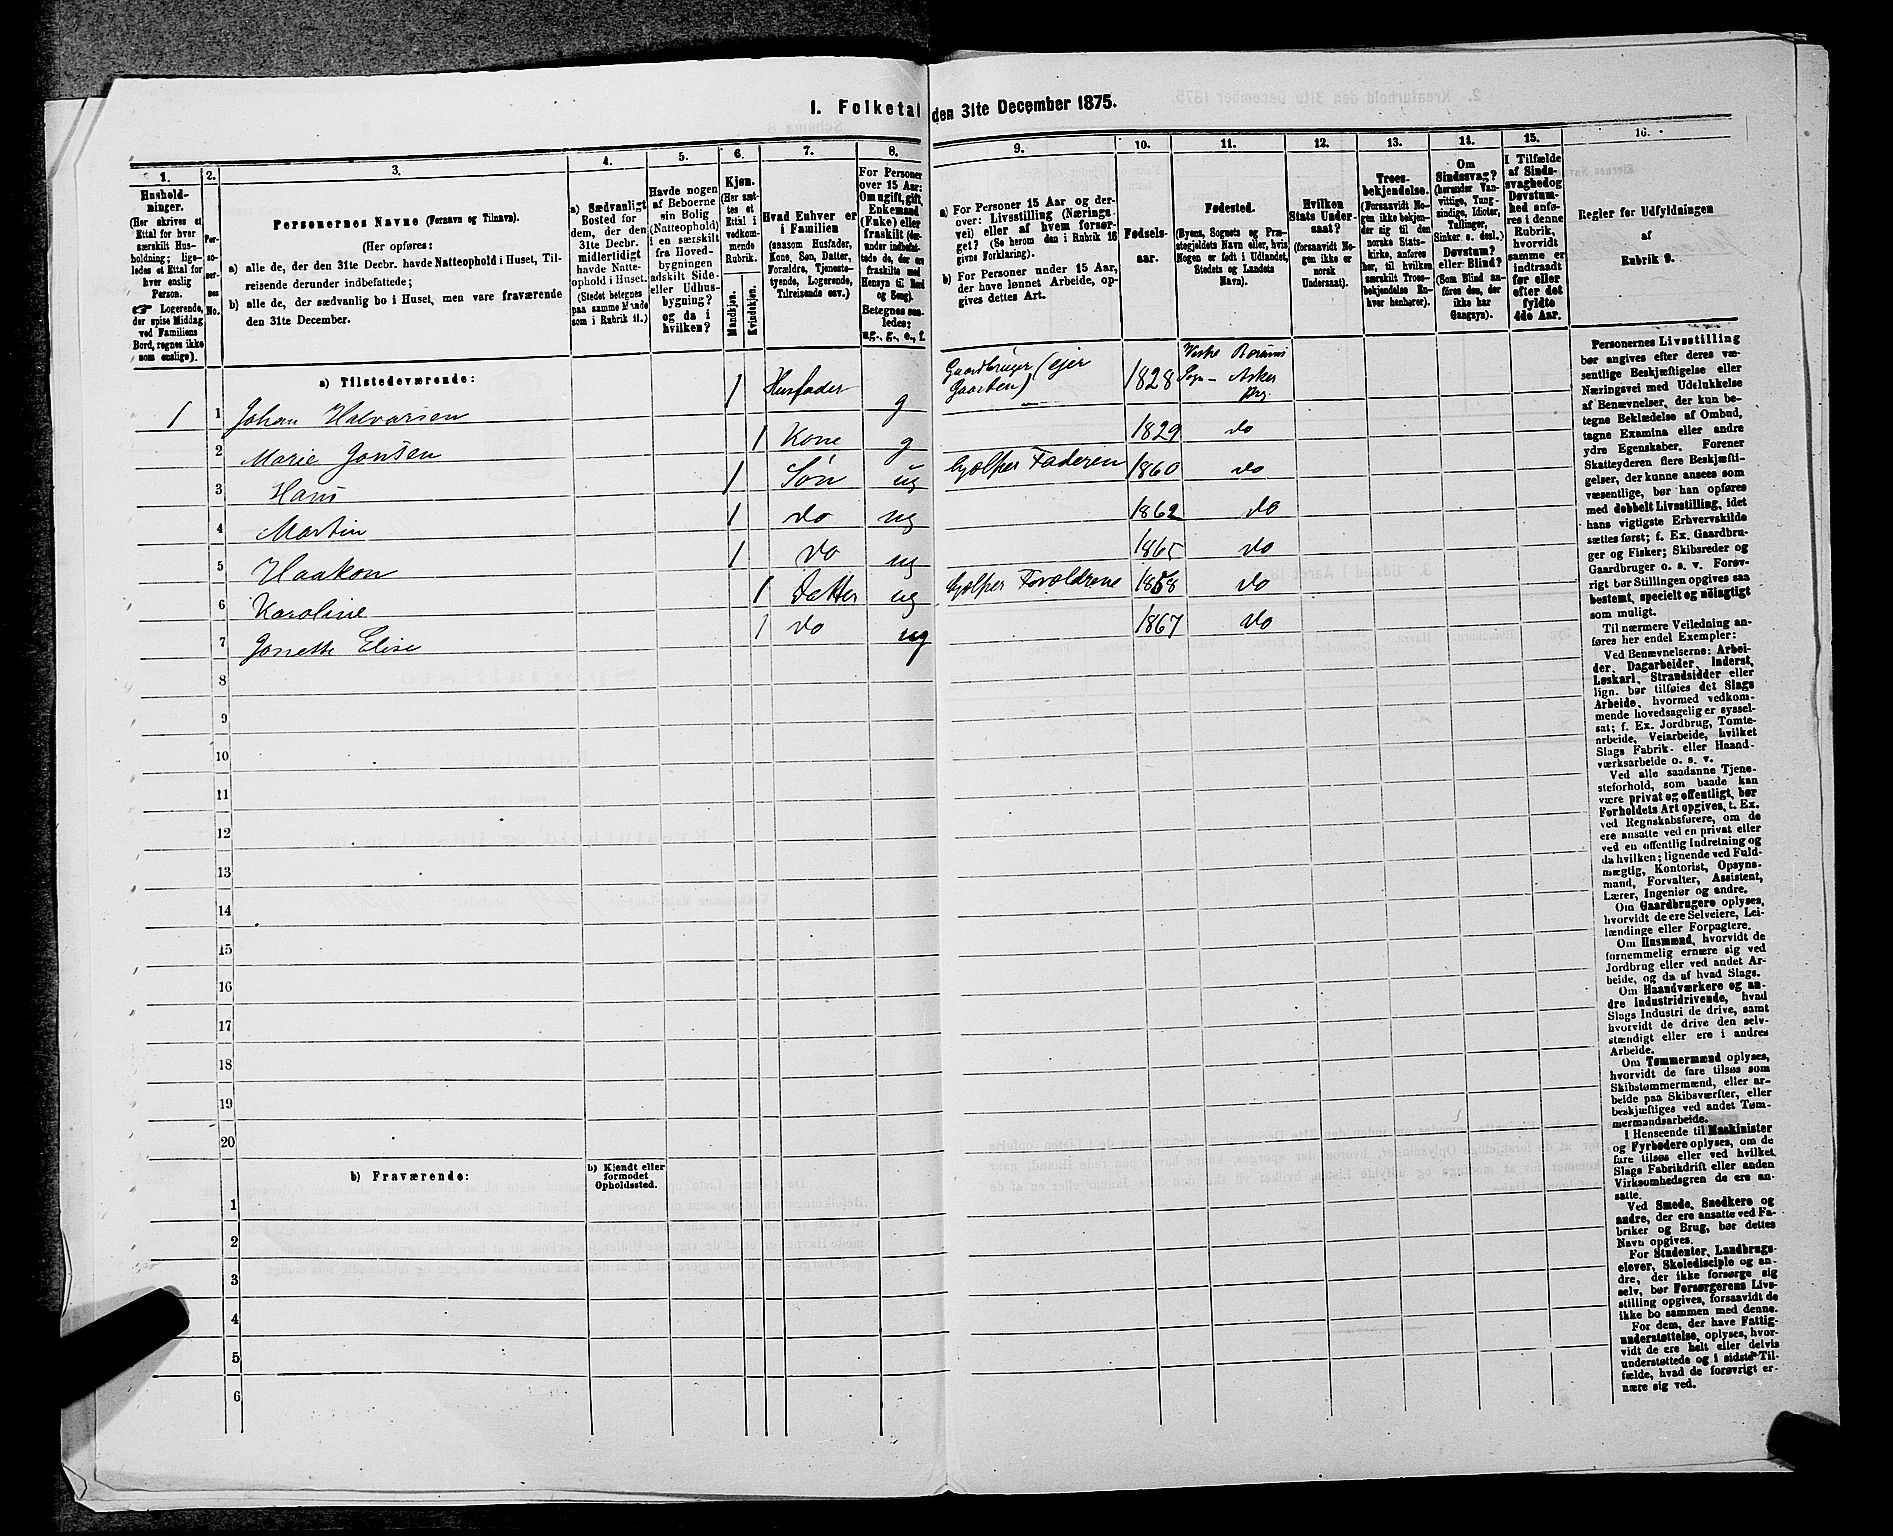 I. Folketal den 31te December 1875.
1. 2. 3. 4. 5. 6. 7. 8. 9. 10. 11. 12. 13. 14. 15. 16.
Hushold-
ninger.
(Her skrives et
Ettal for hver
særskilt Hus-
holdning; lige-
ledes et Ettal for
hver enslig
Person.
☞ Logerende,
der spise Middag
ved Familiens
Bord, regnes ikke
som enslige).
Per-
so-
ner-
nes
No.
Personernes Navne (Fornavn og Tilnavn).
(Her opføres:
a) alle de, der den 31te Decbr. havde Natteophold i Huset, Til-
reisende derunder indbefattede;
b) alle de, der sædvanlig bo i Huset, men vare fraværende
den 31te December.
a) Sædvanligt
Bosted for
dem, der den
31te Decbr.
midlertidigt
havde Natte-
ophold i Huset.
(Stedet betegnes
paa samme Maade
som i Rubrik 11.)
Havde nogen
af Beboerne
sin Bolig
(Natteophold)
i en særskilt
fra Hoved-
bygningen
adskilt Side-
eller Udhus-
bygning?
og da i
hvilken?
Kjøn.
(Her sæt-
tes et
Ettal i
vedkom-
mende
Rubrik.
Mandkjøn.
Kvindekjøn.
Hvad Enhver er
i Familien
(saasom Husfader,
Kone, Søn, Datter,
Forældre, Tjeneste-
tyende, Logerende,
Tilreisende osv.)
For Personer
over 15 Aar:
Om ugift, gift,
Enkemand
(Enke) eller
fraskilt (der-
under indbefat-
tede de, der ere
fraskilte med
Hensyn til Bord
og Seng).
Betegnes saa-
ledes:
ug., g., e., f.
a) For Personer 15 Aar og der-
over: Livsstilling (Nærings-
vei) eller af hvem forsør-
get? (Se herom den i Rubrik 16
givne Forklaring).
b) For Personer under 15 Aar,
der have lønnet Arbeide, op-
gives dettes Art.
Fødsels-
aar.
Fødested.
(Byens, Sognets og Præ-
stegjeldets Navn eller, hvis
Nogen er født i Udlandet,
Stedets og Landets
Navn).
Hvilken
Stats Under-
saat?
(forsaavidt No-
gen ikke er
norsk
Undersaat).
Troes-
bekjendelse.
(Forsaavidt No-
gen ikke bekjen-
der sig til den
norske Stats-
kirke, anføres
her, til hvilken
særskilt Troes-
bekjendelse En-
hver henhører).
Om
Sindssvag?
(herunder Van-
vittige, Tung-
sindige, Idioter,
Tullinger,
Sinker o. desl.)
Døvstum?
eller Blind?
(Som Blind an-
føres den, der
ikke har
Gangsyn).
I Tilfælde
af Sinds-
svaghed og
Døvstum-
hed anfø-
res i denne
Rubrik,
hvorvidt
samme er
indtraadt
før eller
efter det
fyldte
4de Aar.
Regler for Udfyldningen
af
Rubrik 9.
a) Tilstedeværende:
1 1 Johan Halvorsen 1 Husfader g Gaardbruger (ejer Gaarden) 1828 Vestre Bærums Sogn - Asker Prg.
2 Marie Jonsen 1 Kone g 1829 do
3 Hans 1 Søn ug hjælper Faderen 1860 do
4 Martin 1 do ug 1862 do
5 Haakon 1 do ug 1865 do
6 Karoline 1 Datter ug hjælper Forældrene 1858 do
7 Jonette Elise 1 do ug 1867 do
8
9
10
11
12
13
14
15
16
17
18
19
20
b) Fraværende:
b) Kjendt eller
formodet
Opholdssted.
1
2
3
4
5
6
Personernes Livsstilling
bør angives efter deres væ-
sentlige Beskjæftigelse eller
Næringsvei med Udelukkelse
af Benævnelser, der kun be-
tegne Beklædelse af Ombud,
tagne Examina eller andre
ydre Egenskaber. Forener
Skatteyderen flere Beskjæfti-
gelser, der kunne ansees som
væsentlige, bør han opføres
med dobbelt Livsstilling, idet
hans vigtigste Erhvervskilde
sættes først; f. Ex. Gaardbru-
ger og Fisker; Skibsreder og
Gaardbruger o. s. v. Forøv-
rigt bør Stillingen opgives saa
bestemt, specielt og nøiagtigt
som muligt.
Til nærmere Veiledning an-
føres her endel Exempler:
Ved Benævnelserne: Arbei-
der, Dagarbeider, Inderst,
Løskarl, Strandsidder eller
lign. bør tilføies det Slags
Arbeide, hvormed vedkom-
mende hovedsagelig er syssel-
sat; f. Ex. Jordbrug, Tomte-
arbeide, Veiarbeide, hvilket
Slags Fabrik- eller Haand-
værksarbeide o. s. v.
Ved alle saadanne Tjene-
steforhold, som baade kan
være privat og offentligt, bør
Forholdets Art opgives, t. Ex.
ved Regnskabsførere, om de
ere ansatte ved en privat eller
ved en offentlig Indretning og
da hvilken; lignende ved Fuld-
mægtig, Kontorist, Opsyns-
mand, Forvalter, Assistent,
Lærer, Ingeniør og andre.
Om Gaardbrugere oplyses,
hvorvidt de ere Selveiere, Lei-
lændinge eller Forpagtere.
Om Husmænd, hvorvidt de
fornemmelig ernære sig ved
Jordbrug eller ved andet Ar-
beide, og da af hvad Slags.
Om Haandværkere og an-
dre Industridrivende, hvad
Slags Industri de drive, samt
hvorvidt de drive den selv-
stændigt eller ere i andres
Arbeide.
Om Tømmermænd oplyses,
hvorvidt de fare tilsøs som
Skibstømmermænd, eller ar-
beide paa Skibsværfter, eller
beskjæftiges ved andet Tøm-
mermandsarbeide.
I Henseende til Maskinister
og Fyrbødere oplyses, om de
fare tilsøs eller ved hvilket
Slags Fabrikdrift eller anden
Virksomhedsgren de ere an-
satte.
Ved Smede, Snedkere og
andre, der ere ansatte ved Fa-
briker og Brug, bør dettes
Navn opgives.
For Studenter, Landbrugs-
elever, Skoledisciple og an-
dre, der ikke forsørge sig
selv, bør Forsørgerens Livs-
stilling opgives, forsaavidt de
ikke bo sammen med denne.
For dem, der have Fattig-
understøttelse, oplyses, hvor-
vidt de ere helt eller delvis
understøttede og i sidste Til-
fælde, hvad de forøvrigt er-
nære sig ved.